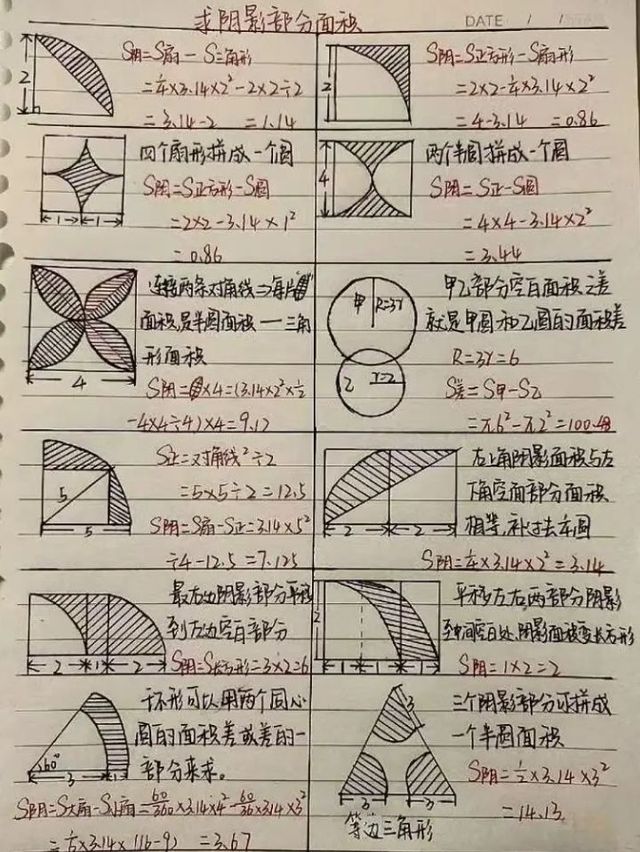 求阴影部分面积
DATE / /
2
S阴=S扇-S三角形
=1/4×3.14×2²-2×2÷2
=3.14-2 =1.14
2
S阴=S正方形-S扇形
=2×2-1/4×3.14×2²
=4-3.14 =0.86
1 1
四个扇形拼成一个圆
S阴=S正方形-S圆
=2×2-3.14×1²
=0.86
4
两个半圆拼成一个圆
S阴=S正-S圆
=4×4-3.14×2²
=3.44
4
连接两条对角线⇒每片
面积是半圆面积一三角
形面积
S阴= ×4=(3.14×2²×1/2
-4×4÷4)×4=9.12
甲 R=3r
乙 r=2
甲乙部分空白面积之差
就是甲圆和乙圆的面积差
R=3r=6
S差=S甲-S乙
=π.6²-π.2²=100.48
5
5
S正=对角线²÷2
=5×5÷2=12.5
S阴=S扇-S正=3.14×5²
÷4-12.5=7.125
2 2
左上角阴影面积与左
下角空白部分面积
相等,补过去本圆
S阴=1/4×3.14×2²=3.14
2 1 2
最左边阴影部分平移
到左边空白部分
S阴=S长方形=3×2=6
2
1 1 1
平移左右两部分阴影
至中间空白处,阴影面积变长方形
S阴=1×2=2
60°
3 1
干环形可以用两个同心
圆的面积差或差的一
部分来求。
S阴=S大扇-S小扇=60/360×3.14×4²-60/36×3.14×3²
=1/6×3.14×(16-9) =3.67
3
3 3
等边三角形
三个阴影部分可拼成
一个半圆面积
S阴=1/2×3.14×3²
=14.13